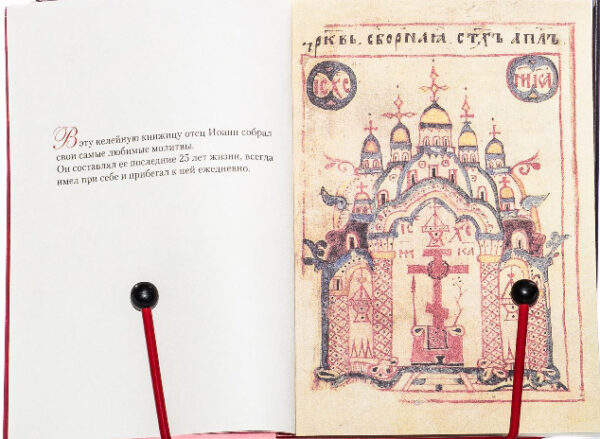 В эту келейную книжицу отец Иоанн собрал
свои самые любимые молитвы.
Он составлял ее последние 25 лет жизни, всегда
имел при себе и прибегал к ней ежедневно.
СБОРНАЯ
IC XC
НИКА
IC XC
НИ КА